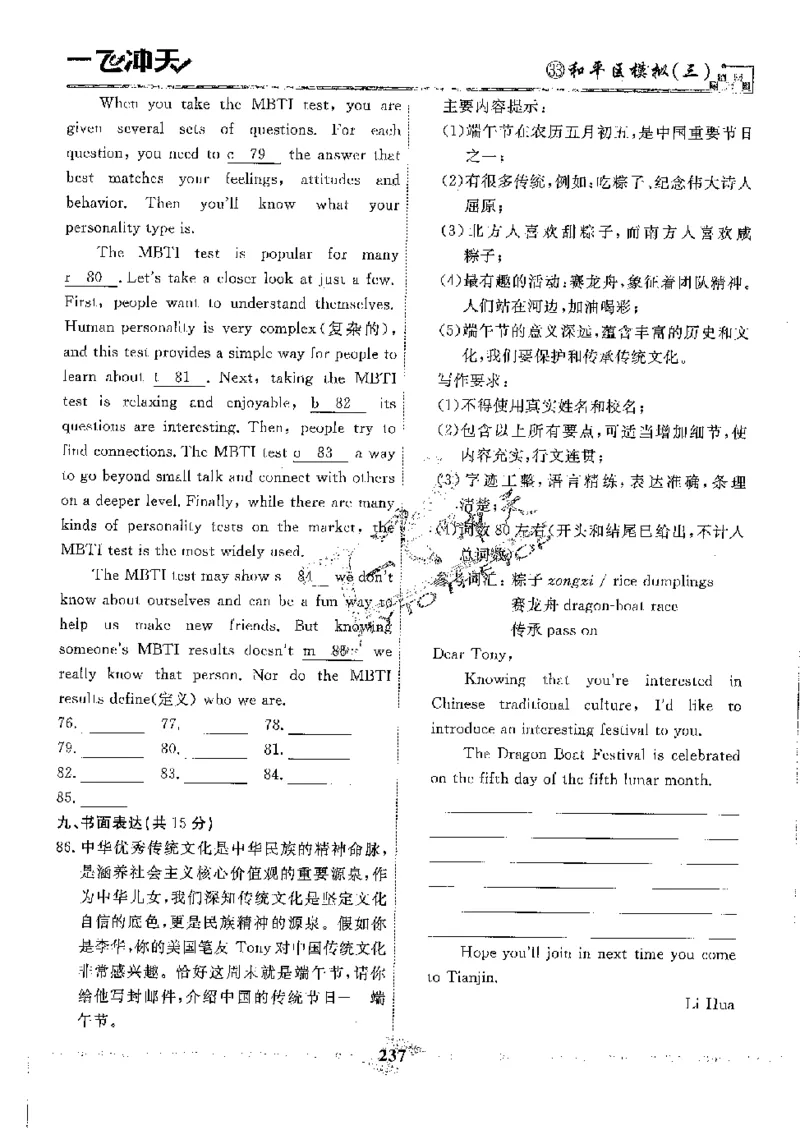 一飞冲天
㉝和平区模拟(三)
When you take the MBTI test, you are
given several sets of questions. For each
question, you need to c 79 the answer that
best matches your feelings, attitudes and
behavior. Then you'll know what your
personality type is.
The MBTI test is popular for many
r 80 . Let's take a closer look at just a few.
First, people want to understand themselves.
Human personality is very complex(复杂的),
and this test provides a simple way for people to
learn about t 81 . Next, taking the MBTI
test is relaxing and enjoyable, b 82 its
questions are interesting. Then, people try to
find connections. The MBTI test o 83 a way
to go beyond small talk and connect with others
on a deeper level. Finally, while there are many
kinds of personality tests on the market, the
MBTI test is the most widely used.
The MBTI test may show s 84 we don't
know about ourselves and can be a fun way to
help us make new friends. But knowing
someone's MBTI results doesn't m 85 we
really know that person. Nor do the MBTI
results define(定义) who we are.
76. ______ 77. ______ 78. ______
79. ______ 80. ______ 81. ______
82. ______ 83. ______ 84. ______
85. ______
九、书面表达(共 15 分)
86. 中华优秀传统文化是中华民族的精神命脉,
是涵养社会主义核心价值观的重要源泉,作
为中华儿女,我们深知传统文化是坚定文化
自信的底色,更是民族精神的源泉。假如你
是李华,你的美国笔友 Tony 对中国传统文化
非常感兴趣。恰好这周末就是端午节,请你
给他写封邮件,介绍中国的传统节日— 端
午节。
主要内容提示:
(1)端午节在农历五月初五,是中国重要节日
之一;
(2)有很多传统,例如:吃粽子、纪念伟大诗人
屈原;
(3)北方人喜欢甜粽子,而南方人喜欢咸
粽子;
(4)最有趣的活动:赛龙舟,象征着团队精神。
人们站在河边,加油喝彩;
(5)端午节的意义深远,蕴含丰富的历史和文
化,我们要保护和传承传统文化。
写作要求:
(1)不得使用真实姓名和校名;
(2)包含以上所有要点,可适当增加细节,使
内容充实,行文连贯;
(3)字迹工整,语言精练,表达准确,条理
清楚;
(4)词数 80 左右(开头和结尾已给出,不计人
总词数)。
参考词汇:粽子 zongzi / rice dumplings
赛龙舟 dragon-boat race
传承 pass on
Dear Tony,
Knowing that you're interested in
Chinese traditional culture, I'd like to
introduce an interesting festival to you.
The Dragon Boat Festival is celebrated
on the fifth day of the fifth lunar month.
Hope you'll join in next time you come
to Tianjin.
Li Hua
237